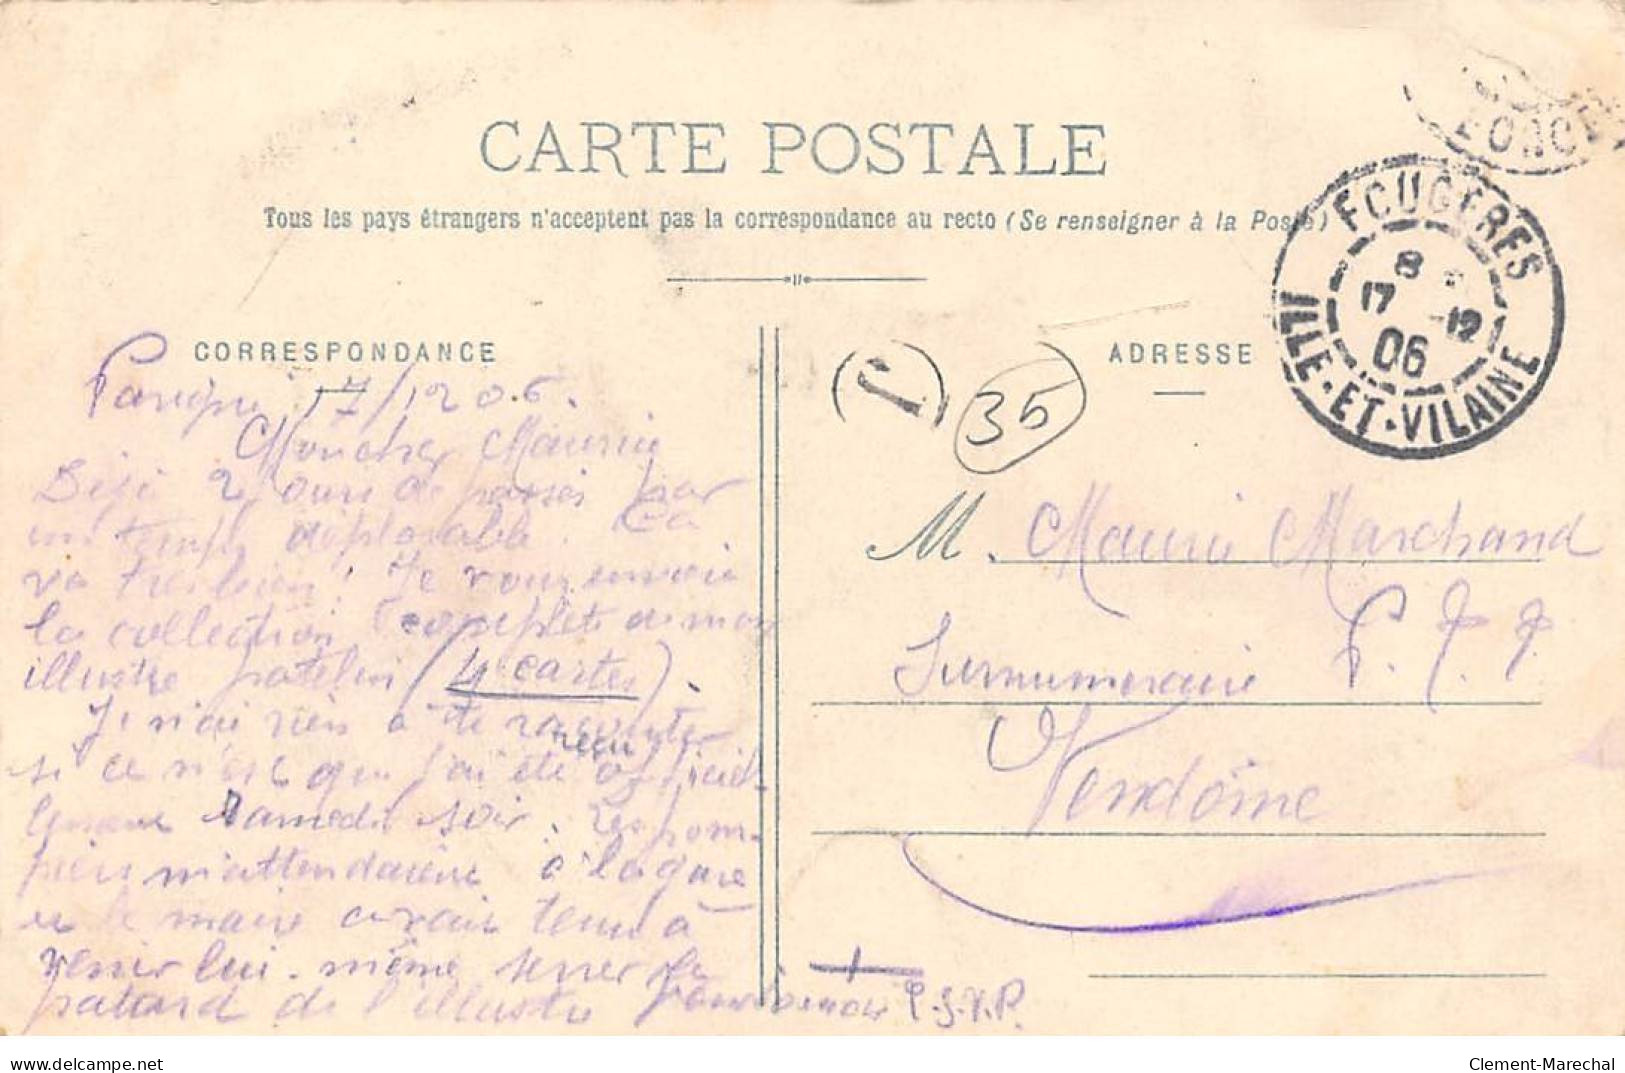 CARTE POSTALE
Tous les pays étrangers n'acceptent pas la correspondance au recto (Se renseigner à la Poste)
FOUGERES
8
17 -12
06
ILLE-ET-VILAINE
CORRESPONDANCE
ADRESSE
35
Parigné 17/12 06.
Mon cher Maurice
Déjà 2 jours de passés par
un temps déplorable. Ca
va très bien! Je vous envoie
la collection complète de mon
illustre patelin (4 cartes).
Je n'ai rien à te raconter
si ce n'est que j'ai été reçu officiel-
lement Samedi soir. Les pom-
piers m'attendaient à la gare
et le maire avait tenu à
venir lui-même serrer la
patard de l'illustre T.S.V.P.
M. Maurice Marchand
Surnumeraire P.T.T.
Vendôme
delcampe.net
Clement-Marechal